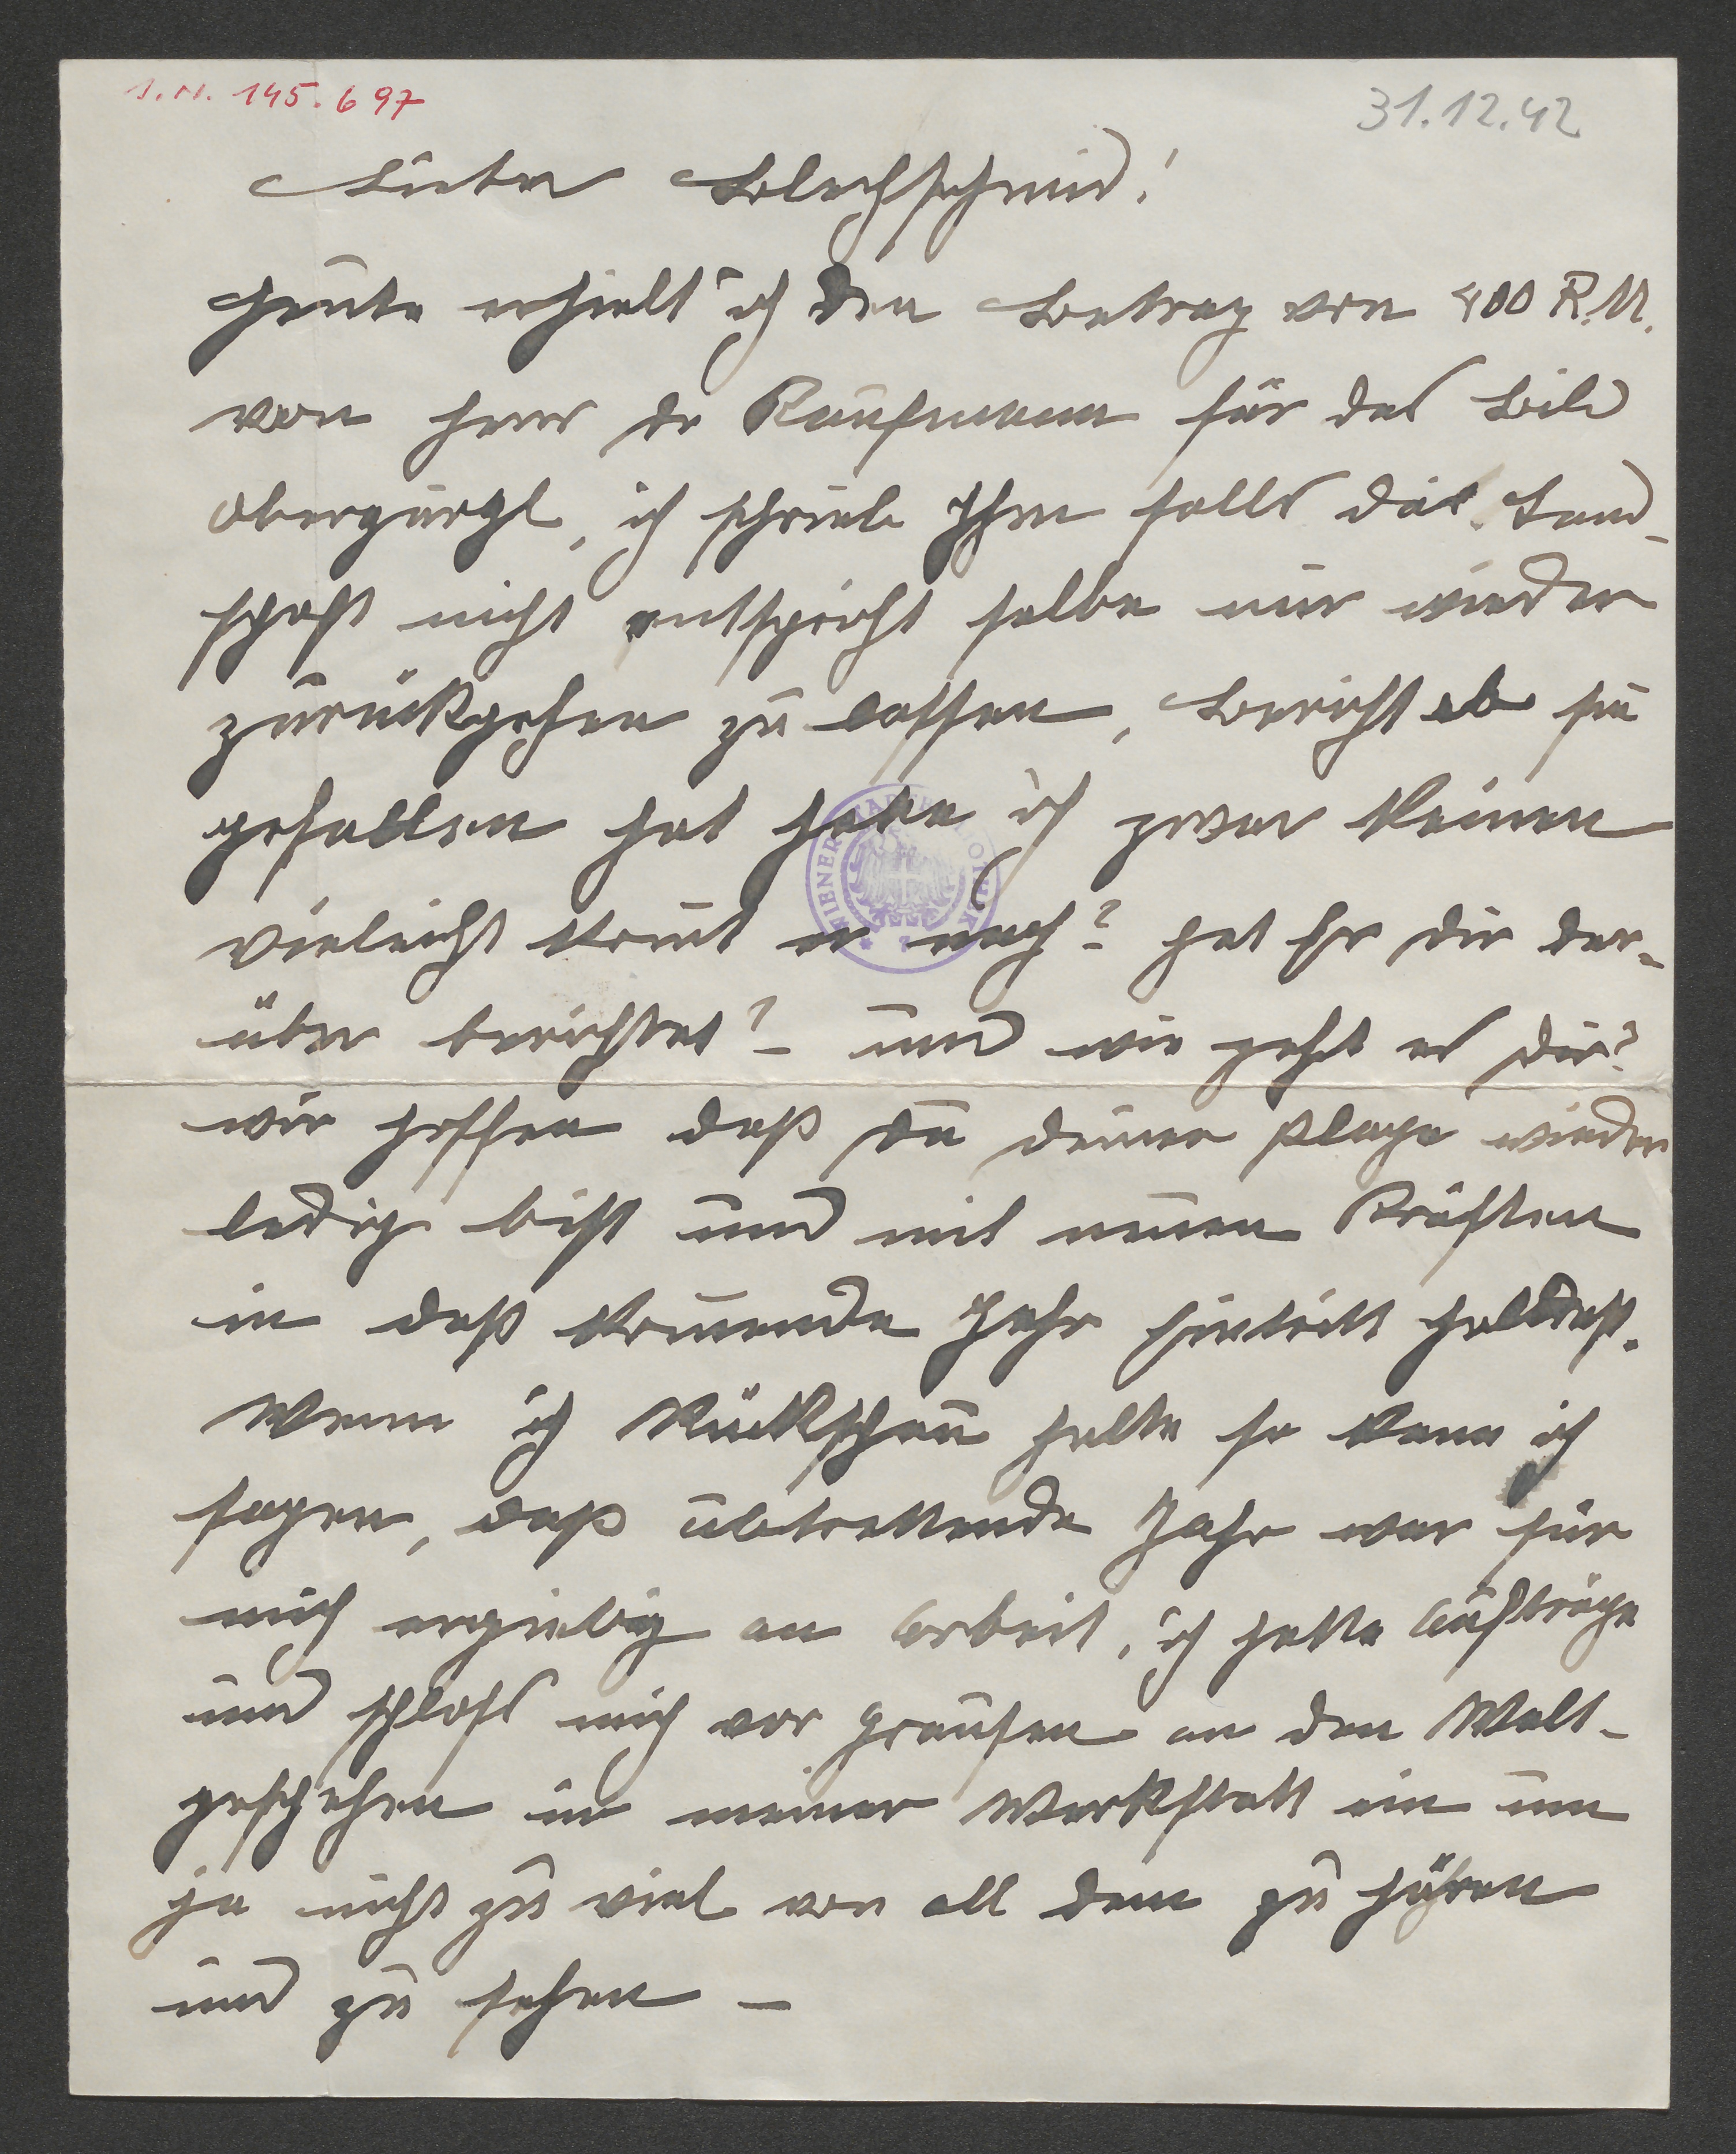 I.N. 145.697
31.12.42
Lieber Blechschmid!
heute erhielt ich den Betrag von 400 R.M.
von Herr Dr Kaufmann für das Bild
Obergurgl, ich schrieb Ihm falls die Land-
schaft nicht entspricht selbe mir wieder
zurückgehen zu lassen, Bericht ob sie
gefallen hat habe ich zwar keinen
vieleicht komt er noch? hat Er dir dar-
über berichtet? – und wie geht es Dir?
WIENER STADTBIBLIOTHEK
wir hoffen daß Du deiner Plage wieder
ledig bist und mit neuen Kräften
in daß komende Jahr Eintritt haltest.
Wenn ich Rückschau halte so kann ich
sagen, daß abtrettende Jahr war für
mich ergiebig an Arbeit, ich hatte Aufträge
und schloß mich vor Grausen an den Welt-
geschehen in meiner Werkstatt ein um
ja nicht zu viel von all dem zu hören
und zu sehen –